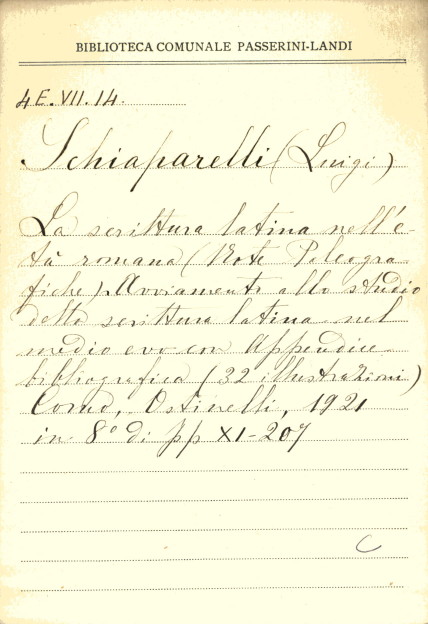 BIBLIOTECA COMUNALE PASSERINI-LANDI
4E.VII.14.
Schiaparelli (Luigi)
La scrittura latina nell'e-
tà romana (Note Paleogra
fiche). Avviamento allo studio
della scrittura latina nel
medio evo con Appendice
bibliografica (32 illustrazioni)
Como, Ostinelli, 1921
in 8º di pp XI-207
C